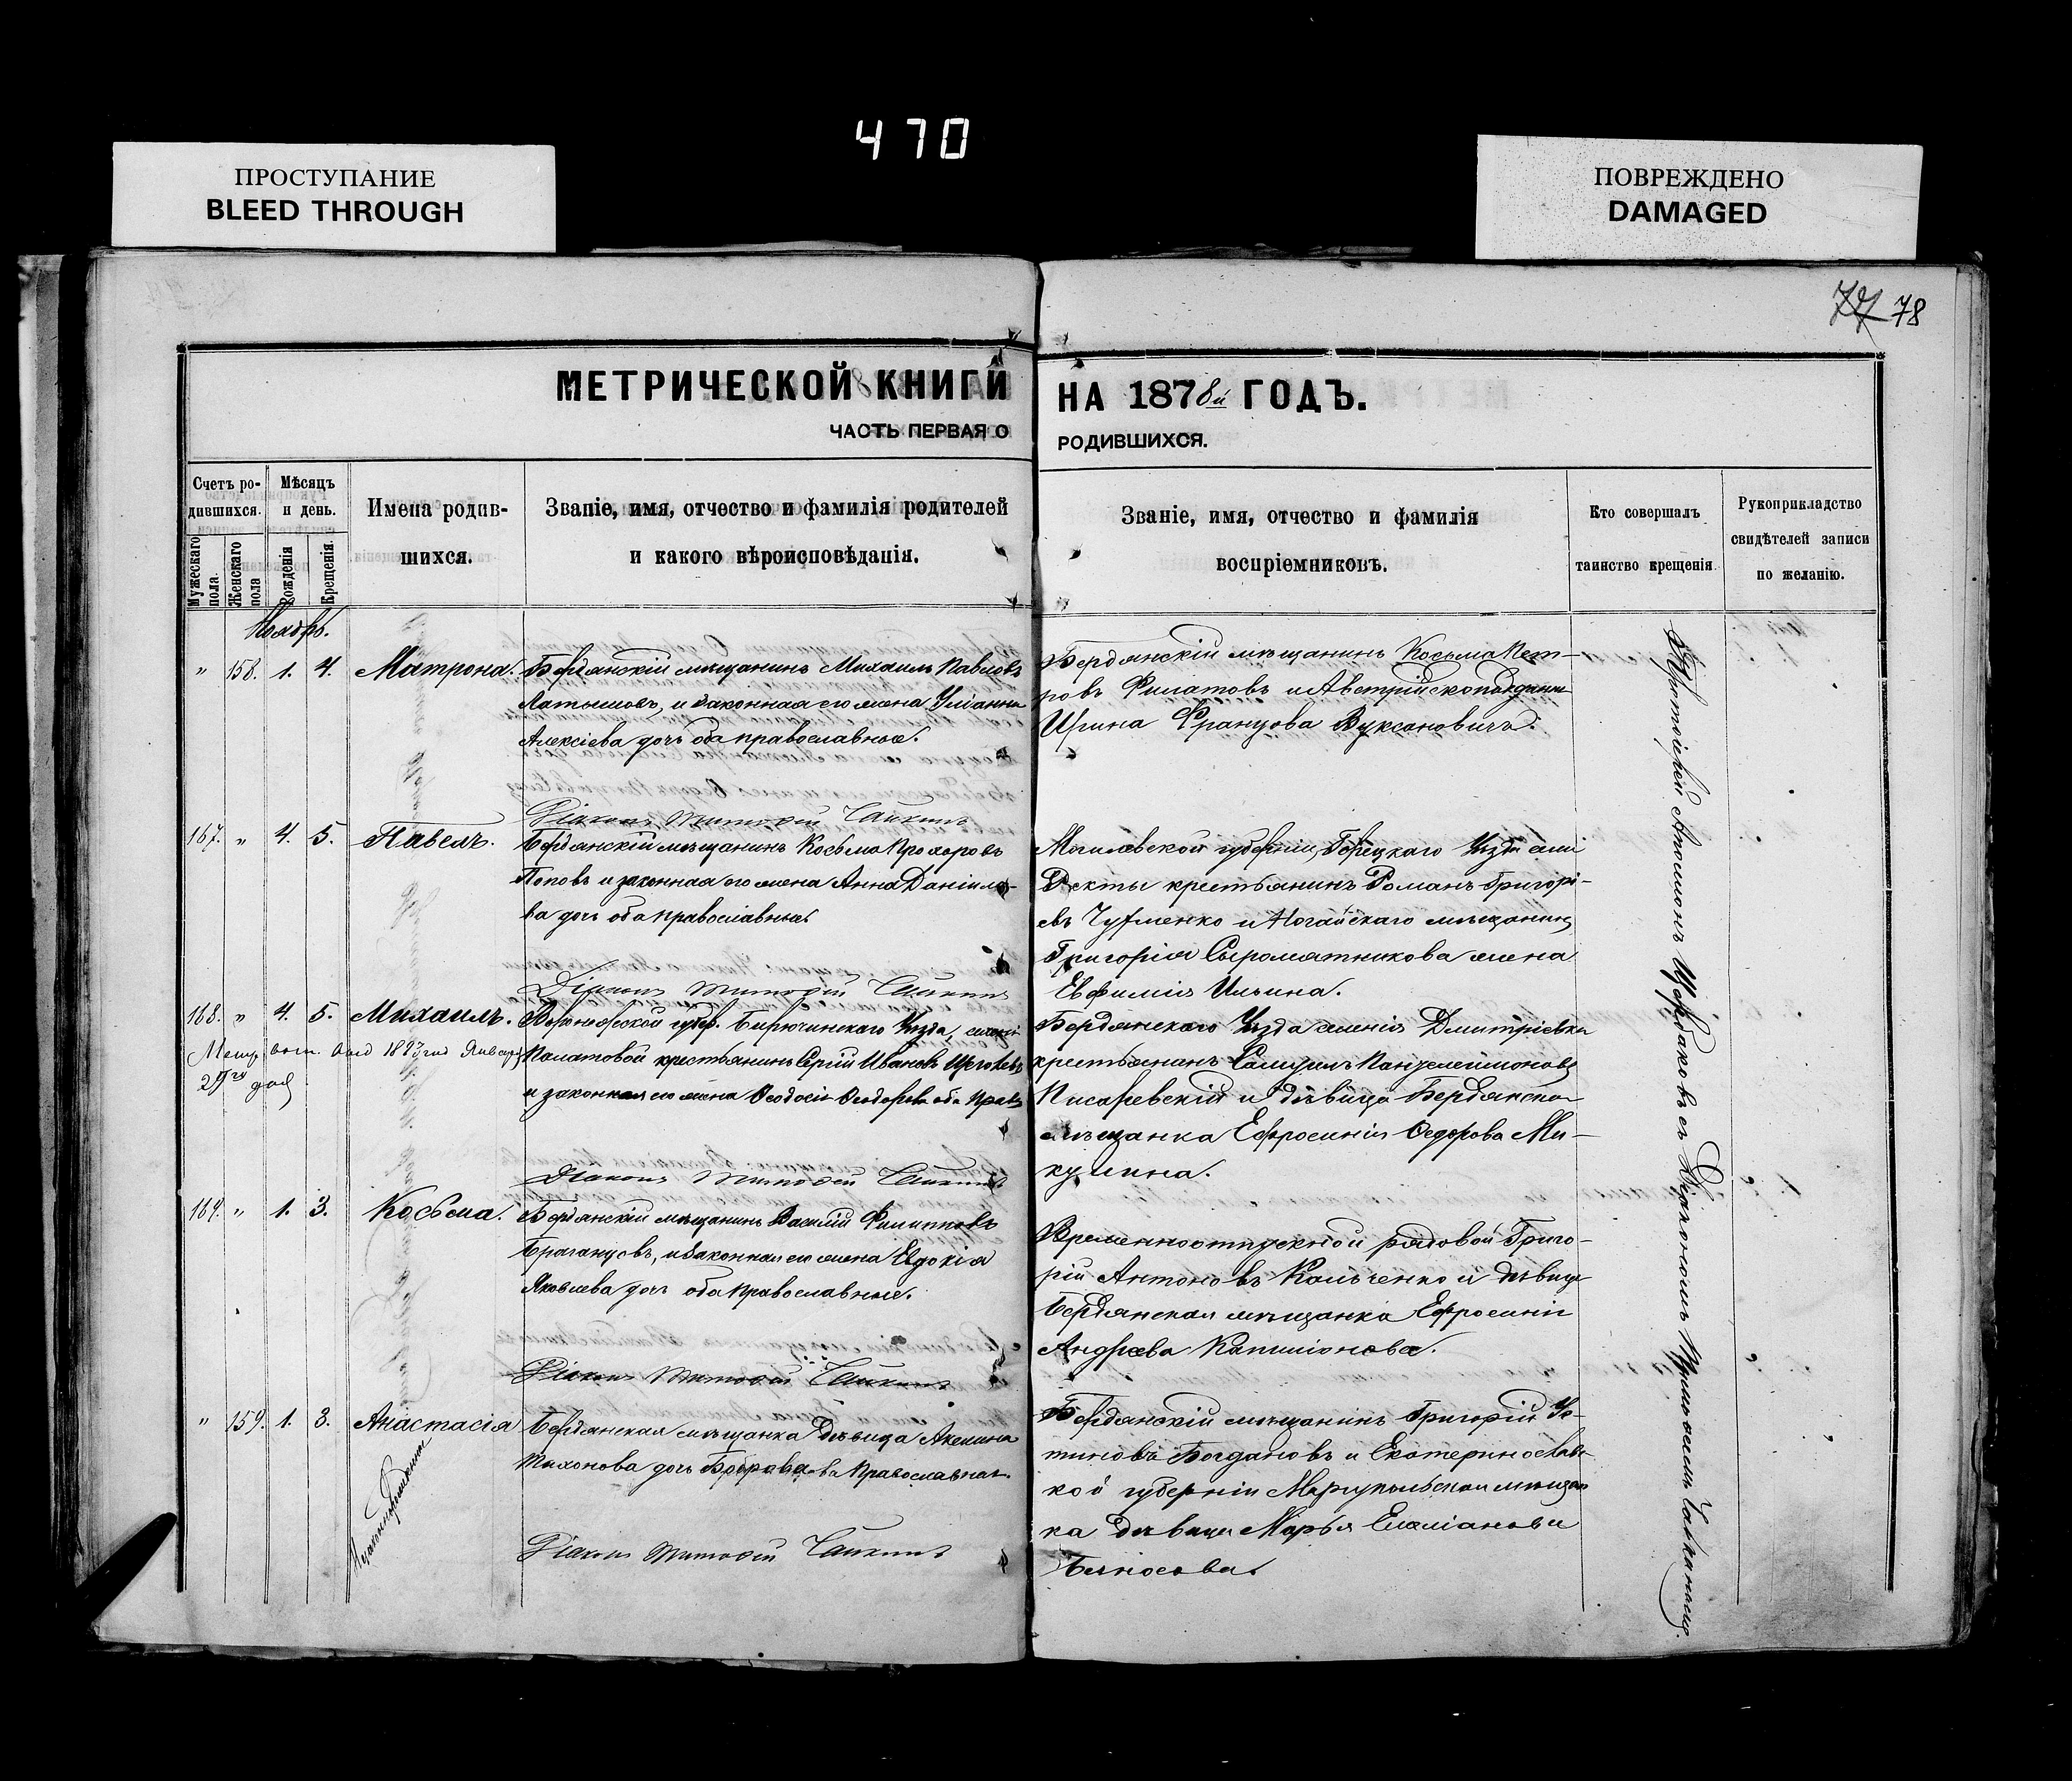 470
ПРОСТУПАНИЕ
BLEED THROUGH
ПОВРЕЖДЕНО
DAMAGED
78
МЕТРИЧЕСКОЙ КНИГИ НА 1878й ГОДЪ.
ЧАСТЬ ПЕРВАЯ О РОДИВШИХСЯ.
Счетъ ро-
дившихся.
Мужескаго пола.
Женскаго пола
Мѣсяцъ
и день.
Рожденія
Крещенія.
Имена родив-
шихся.
Званіе, имя, отчество и фамилія родителей
и какого вѣроисповѣданія.
Званіе, имя, отчество и фамилія
воспріемниковъ.
Кто совершалъ
таинство крещенія
Рукоприкладство
свидѣтелей записи
по желанію.
Ноябрь.
" 158. 1. 4. Матрона.
Бердянскій мѣщанинъ Михаилъ Павловъ
Латышовъ, и законная его жена Уліанна
Алексіева дочь оба православные.
Діаконъ Тимофей Чайкинъ
Бердянскій мѣщанинъ Косьма Пет-
ровъ Филатовъ и Австрійскоподдан
Ирина Францова Вуксановичъ.
167. " 4. 5. Павелъ.
Бердянскій мѣщанинъ Косьма Прохоровъ
Поповъ и законная его жена Анна Даніило-
ва дочь оба православные.
Діаконъ Тимофей Чайкинъ
Могилевской губерніи, Горецкаго Уѣзда
крестьянинъ Романъ Григорі-
евъ и Ногайскаго мѣщанина
Григорія Сыромятникова жена
Евфимія Ильина.
168. " 4. 5. Михаилъ.
1897 год Января
29го дня
Воронежской губер. Бирюченскаго Уѣзда,
Палатовой крестьянинъ Сергій Ивановъ
и законная его жена Ѳеодосія Ѳеодорова оба прав.
Діаконъ Тимофей Чайкинъ
Бердянскаго Уѣзда селенія Дмитріевки
крестьянинъ Самуилъ Пантелеимоновъ
Писаревскій и дѣвица Бердянская
мѣщанка Ефросинія Ѳедорова Ми-
кулина.
169. " 1. 3. Косьма.
Бердянскій мѣщанинъ Василій Филиповъ
Браганцовъ, и законная его жена Евдокія
Яковлева дочь оба православные.
Діаконъ Тимофей Чайкинъ
Временноотпускной рядовой Григо-
рій Антоновъ Кольченко и дѣвица
Бердянская мѣщанка Ефросинія
Андреева Капиліонова.
" 159. 1. 3. Анастасія
Незаконнорожденная
Бердянская мѣщанка дѣвица Акилина
Тихонова дочь православная.
Діаконъ Тимофей Чайкинъ
Бердянскій мѣщанинъ Григорій Ус-
тиновъ Богдановъ и Екатеринослав-
кой губерніи Маріупольская мѣщан
ка дѣвица Марья Емеліанова
Бѣлносова.
Протоіерей Аполлонъ Щербаковъ съ Діакономъ Тимофеемъ Чайкинымъ.